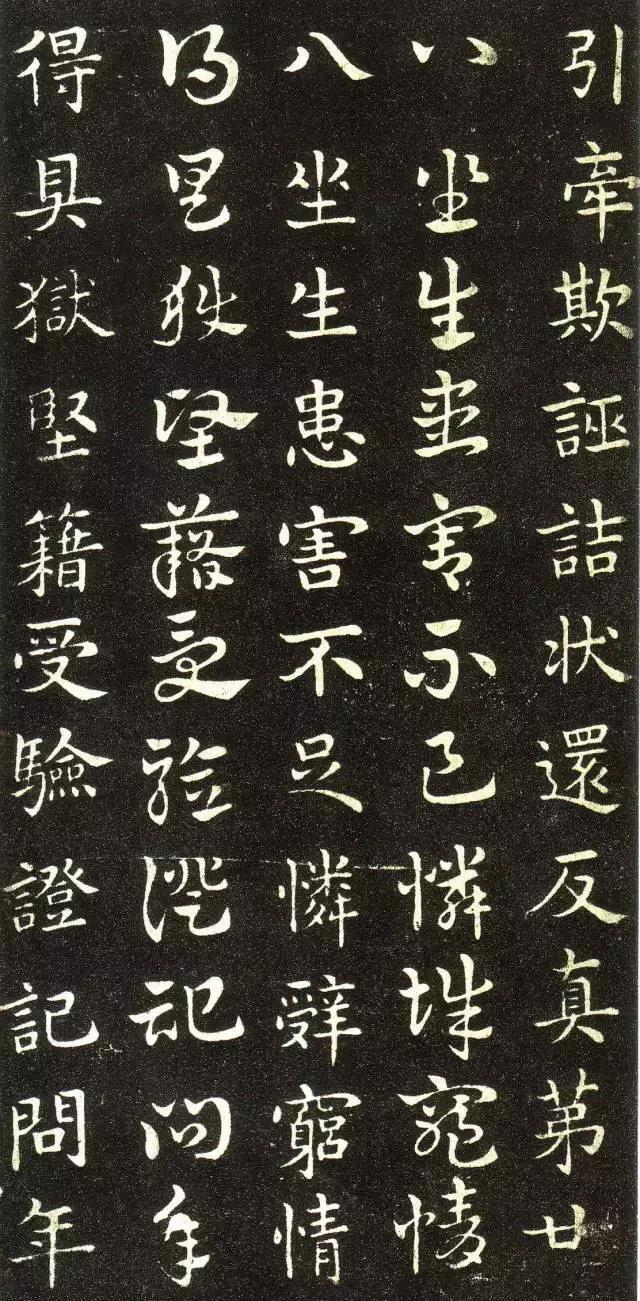 引牽欺誣詰状還反真第廿
八坐生患害不足憐辭窮情
八坐生患害不足憐辭窮情
得具獄堅藉受驗證記問年
得具獄堅籍受驗證記問年